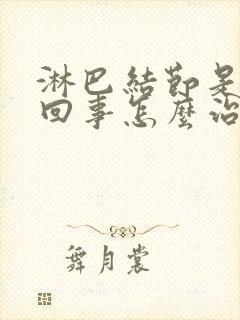 淋巴結節是
回事怎麼治
舞月裳